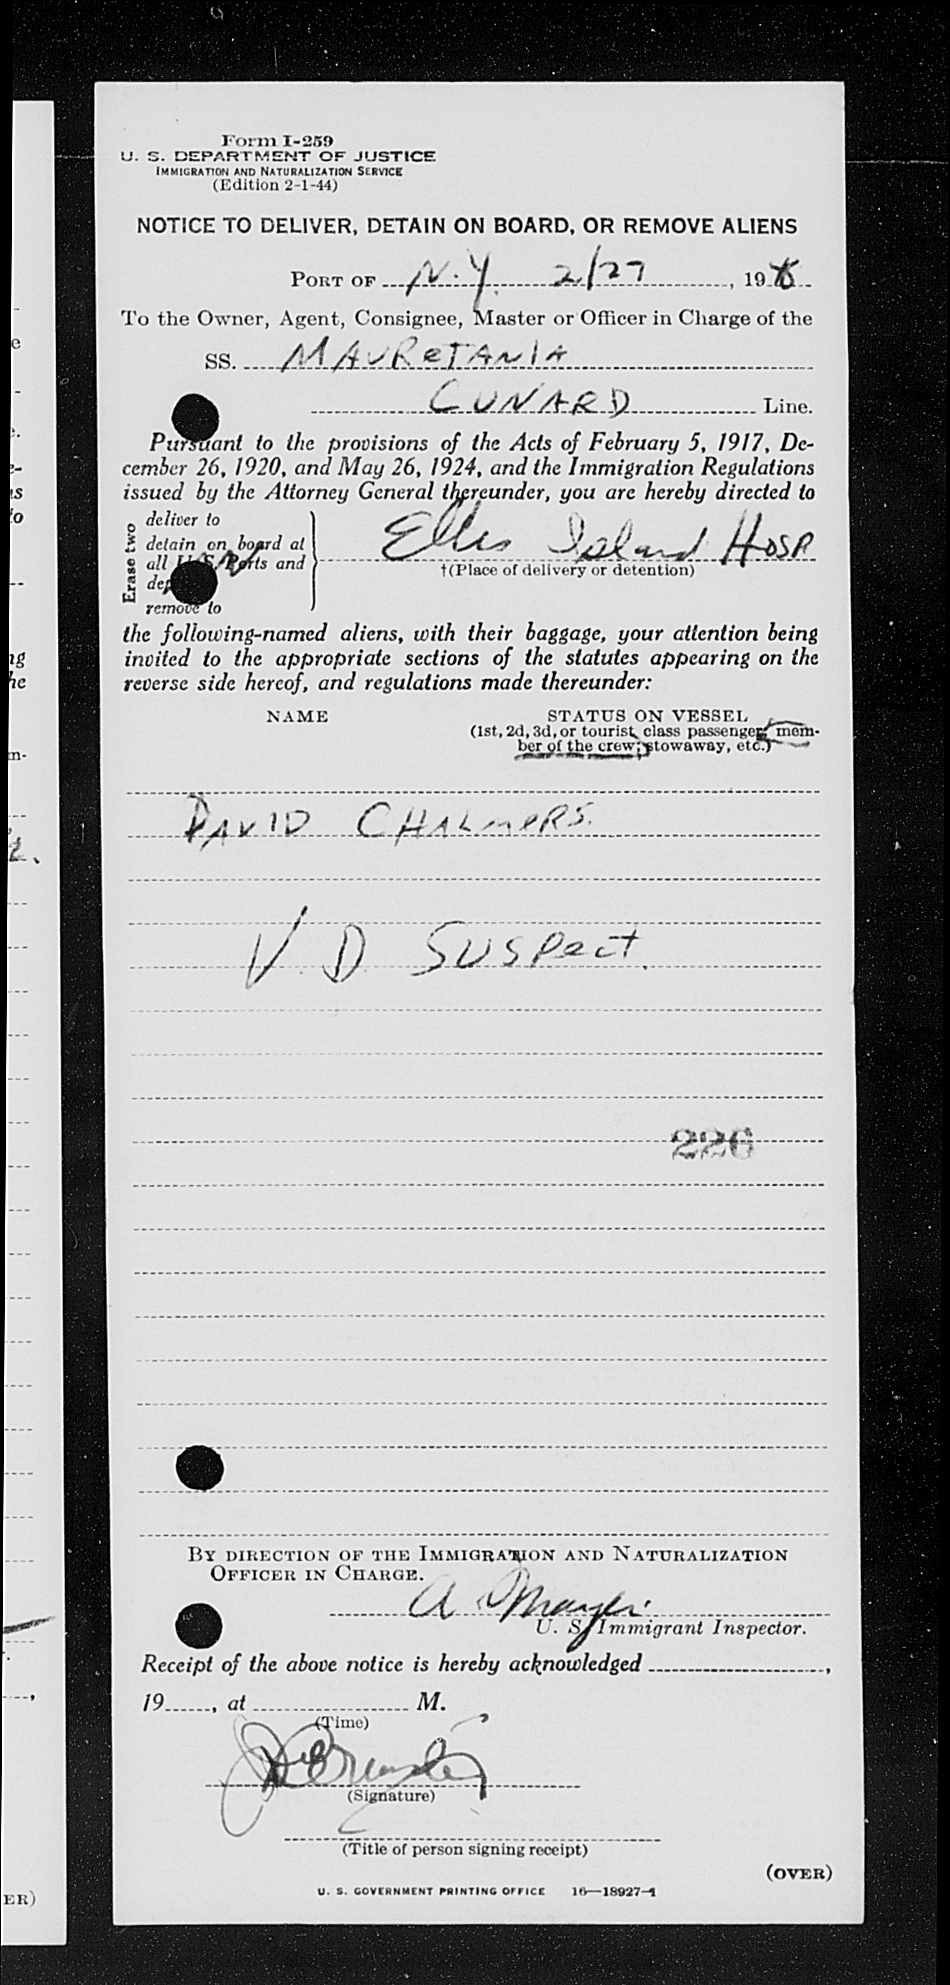 Form I-259
U. S. DEPARTMENT OF JUSTICE
IMMIGRATION AND NATURALIZATION SERVICE
(Edition 2-1-44)
NOTICE TO DELIVER, DETAIN ON BOARD, OR REMOVE ALIENS
PORT OF N.Y. 2/27, 19
To the Owner, Agent, Consignee, Master or Officer in Charge of the
SS. MAURETANIA
CUNARD Line.
Pursuant to the provisions of the Acts of February 5, 1917, De-
cember 26, 1920, and May 26, 1924, and the Immigration Regulations
issued by the Attorney General thereunder, you are hereby directed to
Erase two
deliver to
detain on board at
all U. S. Ports and
remove to
Ellis Island Hosp
†(Place of delivery or detention)
the following-named aliens, with their baggage, your attention being
invited to the appropriate sections of the statutes appearing on the
reverse side hereof, and regulations made thereunder:
NAME
STATUS ON VESSEL
(1st, 2d, 3d, or tourist class passenger, mem-
ber of the crew, stowaway, etc.)
DAVID CHALMERS.
V.D. Suspect.
226
BY DIRECTION OF THE IMMIGRATION AND NATURALIZATION
OFFICER IN CHARGE.
A
U. S. Immigrant Inspector.
Receipt of the above notice is hereby acknowledged ,
19 , at M.
(Time)
(Signature)
(Title of person signing receipt)
(OVER)
U. S. GOVERNMENT PRINTING OFFICE 16—18927-1
ER)